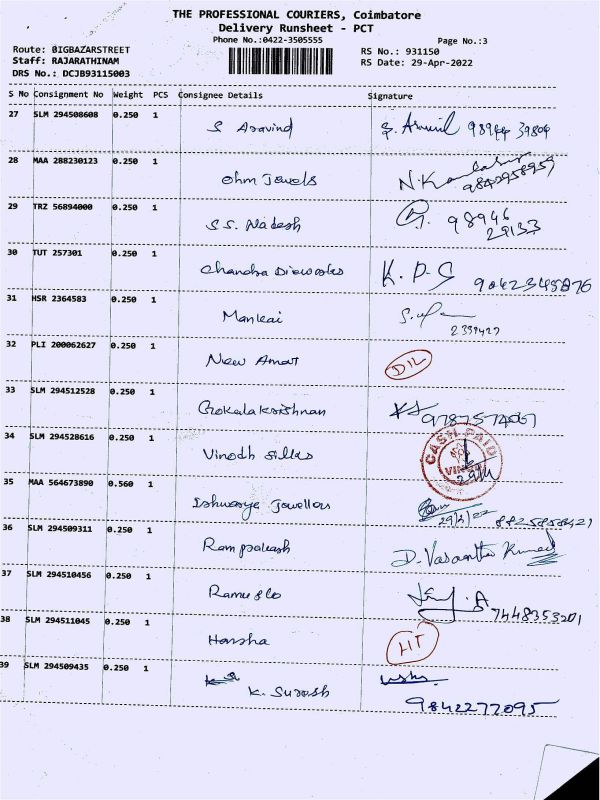 THE PROFESSIONAL COURIERS, Coimbatore
Delivery Runsheet - PCT
Phone No.:0422-3505555
Page No.:3
Route: @IGBAZARSTREET
RS No.: 931150
Staff: RAJARATHINAM
RS Date: 29-Apr-2022
DRS No.: DCJB93115003
S No Consignment No Weight PCS Consignee Details Signature
27 SLM 294508608 0.250 1 S Aravind S. Aravind 98944 39804
28 MAA 288230123 0.250 1 Ohm Jewels 9842958959
29 TRZ 56894000 0.250 1 S.S. Nadesh 98946
29133
30 TUT 257301 0.250 1 Chandra K. P. S 9042345876
31 HSR 2364583 0.250 1 Mankai
2339427
32 PLI 200062627 0.250 1 New Amar DIL
33 SLM 294512528 0.250 1 Gokalakrishnan
34 SLM 294528616 0.250 1 Vinodh sillas CASH PAID
29/4
35 MAA 564673890 0.560 1 Ishwarya Jewellers
29/4/22
36 SLM 294509311 0.250 1 Ram prakash D. Vasantha Kumar
37 SLM 294510456 0.250 1 7448353201
38 SLM 294511045 0.250 1 Harsha HT
39 SLM 294509435 0.250 1 K. Suresh
9842277095